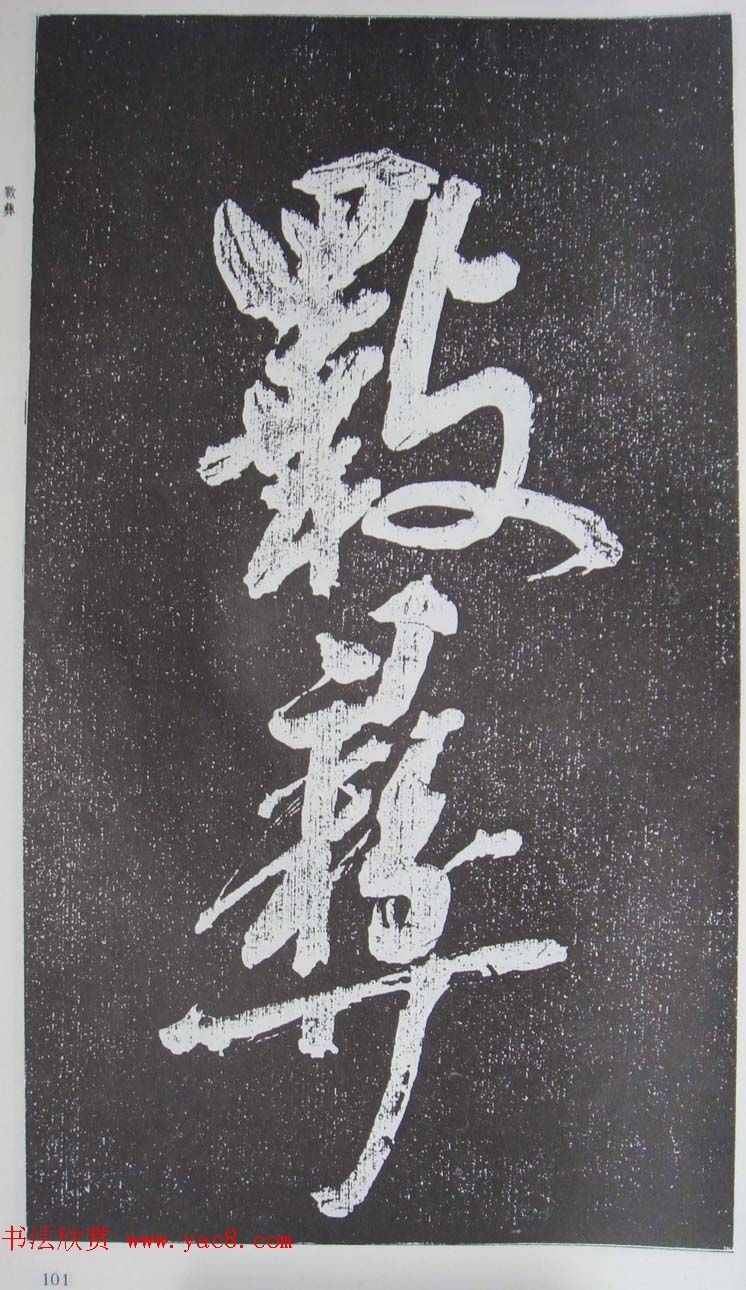 斁彝
斁彝
书法欣赏 www.yac8.com
101